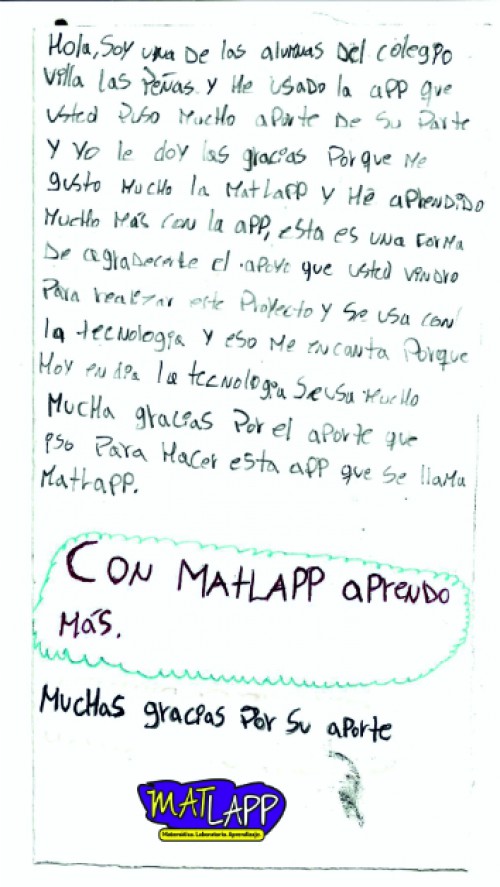 Hola, soy una de las alumnas del colegio
villa las Peñas y He usado la app que
usted puso Mucho aporte De su parte
y yo le doy las gracias Porque Me
gusto Mucho la Matlapp y Hé aprendido
Mucho Más con la app, esta es una Forma
De agradecerle el apoyo que usted vindro
Para realizar este Proyecto y se usa con
la tecnología y eso Me encanta Porque
Hoy en día la tecnología se usa Mucho
Mucha gracias Por el aporte que
pso Para Hacer esta app que se llama
Matlapp.
Con Matlapp aprendo
Más.
Muchas gracias Por su aporte
MATLAPP
Matemática. Laboratorio. Aprendizaje.